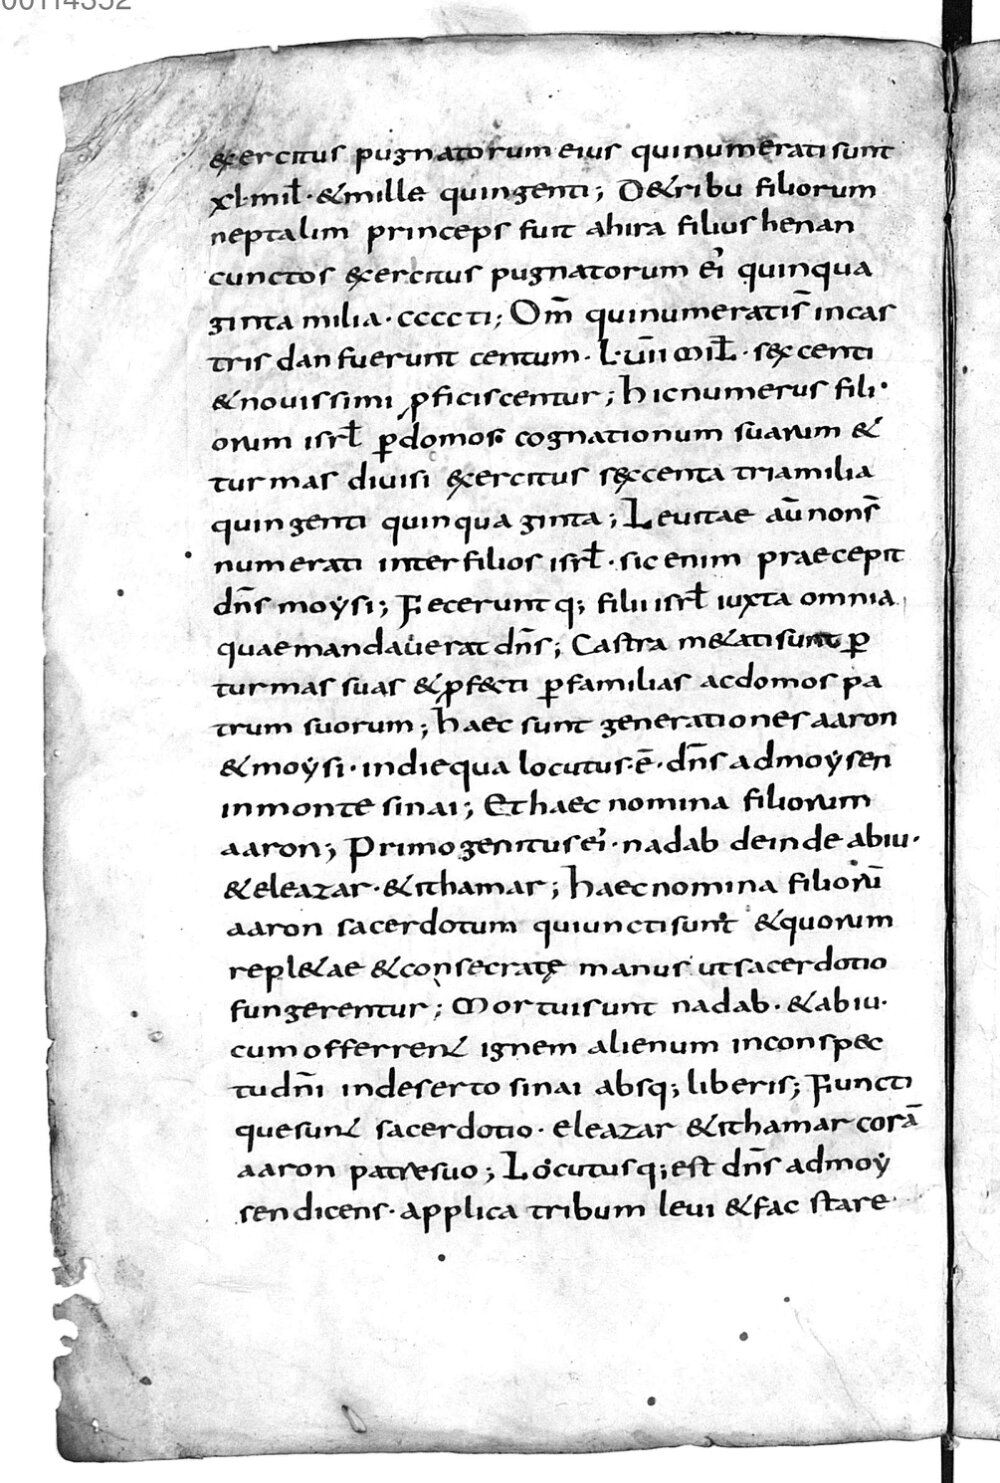 &xercitus pugnatorum eius quinumerati sunt
xl·mil̅·&mille quingenti; D&ribu filiorum
neptalim princeps fuit ahira filius henan
cunctos exercitus pugnatorum ei' quinqua
ginta milia·ccccti; Om̅ quinumeratis̅ incas
tris dan fuerunt centum·l·uii mil̅·sexcenti
&nouissimi ꝓficiscentur; hicnumerus fili·
orum isrl̅ ꝑdomos cognationum suarum &
turmas diuisi exercitus sexcenta triamilia
quingenti quinquaginta; Leuitae au̅ nons̅
numerati inter filios isrl̅·sic enim praecepit
dn̅s moẏsi; Feceruntq; filii isrl̅ iuxta omnia
quaemandauerat dn̅s; Castra m&ati sunt ꝑ
turmas suas &ꝓf&ti ꝑfamilias acdomos pa
trum suorum; haec sunt generationes aaron
&moẏsi·indiequa locutus·e̅·dn̅s admoẏsen
inmonte sinai; Ethaec nomina filiorum
aaron; Primogenitus ei'·nadab deinde abiu·
&eleazar·&ithamar; haecnomina filioru̅
aaron sacerdotum quiunctisunt &quorum
repl&ae &consecratę manus utsacerdotio
fungerentur; Mortuisunt nadab·&abiu·
cumofferren& ignem alienum inconspec
tudn̅i indeserto sinai absq; liberis; Functi
quesun& sacerdotio·eleazar &ithamar cora̅
aaron patresuo; Locutusq; est dn̅s admoẏ
sendicens·applica tribum leui &fac stare